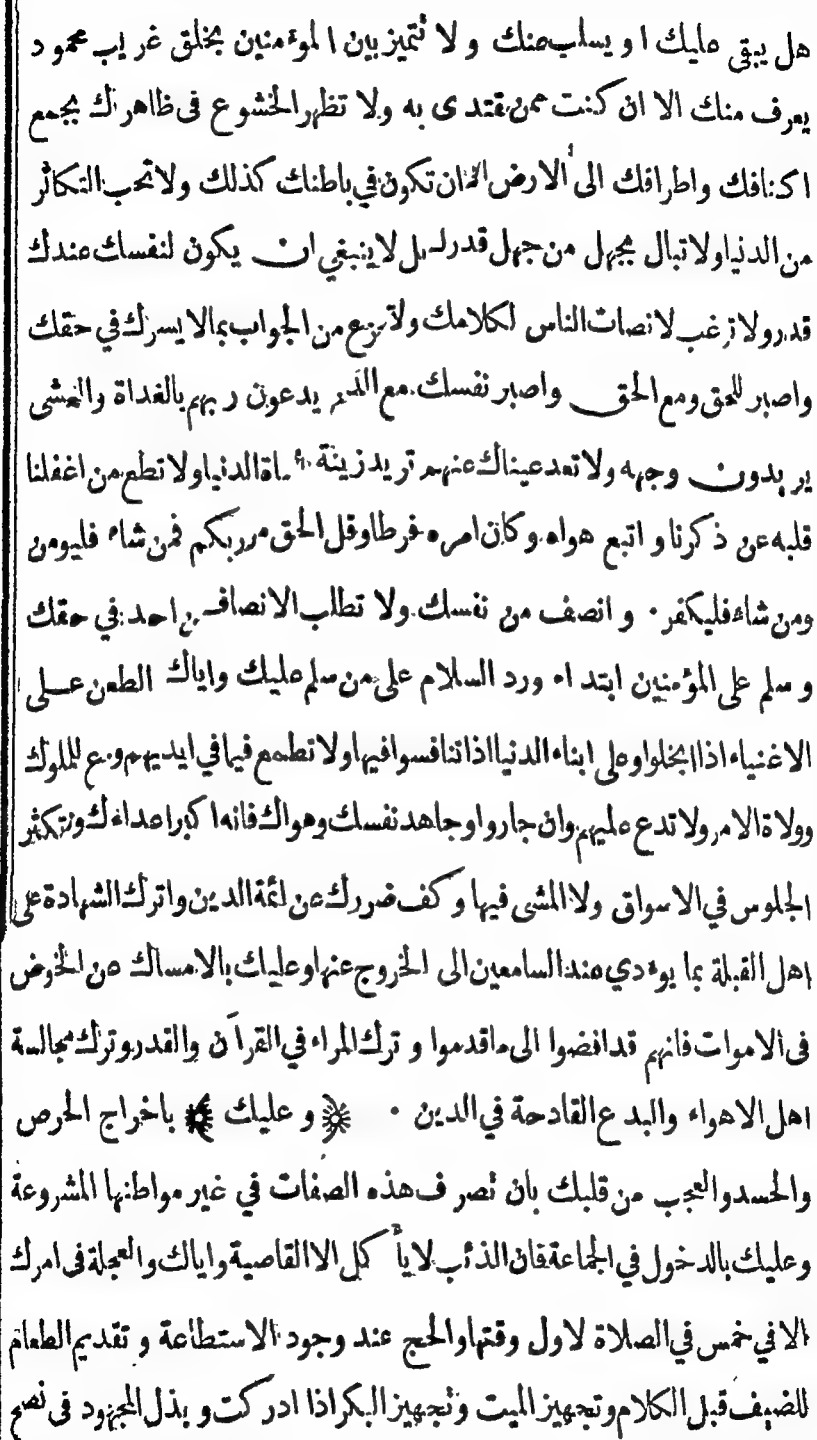 هل يبقى عليك او يسلب منك ولا تتميز بين المؤمنين بخلق غريب محمود
يعرف منك الا ان كنت ممن يقتدى به ولا تظهر الخشوع في ظاهرك بجمع
اكنافك واطرافك الى الارض الا ان تكون في باطنك كذلك ولا تحب التكاثر
من الدنيا ولا تبال بجهل من جهل قدرك بل لا ينبغي ان يكون لنفسك عندك
قدر ولا ترغب لانصات الناس لكلامك ولا تجزع من الجواب بما لا يسرك في حقك
واصبر للحق ومع الحق واصبر نفسك مع الذين يدعون ربهم بالغداة والعشى
يريدون وجهه ولا تعد عيناك عنهم تريد زينة الحياة الدنيا ولا تطع من اغفلنا
قلبه عن ذكرنا واتبع هواه وكان امره فرطا وقل الحق من ربكم فمن شاء فليومن
ومن شاء فليكفر ۰ وانصف من نفسك ولا تطلب الانصاف من احد في حقك
وسلم على المؤمنين ابتداء ورد السلام على من سلم عليك واياك الطعن على
الاغنياء اذا بخلوا وعلى ابناء الدنيا اذا تنافسوا فيها ولا تطمع فيما في ايديهم وادع للملوك
وولاة الامر ولا تدع عليهم وان جاروا وجاهد نفسك وهواك فانه اكبر اعداءك ولا تكثر
الجلوس في الاسواق ولا المشى فيها وكف ضررك عن ائمة الدين واترك الشهادة على
اهل القبلة بما يؤدي عند السامعين الى الخروج عنها وعليك بالامساك عن الخوض
في الاموات فانهم قد افضوا الى ما قدموا وترك المراء في القرآن والقدر وترك مجالسة
اهل الاهواء والبدع القادحة في الدين ۰ ﴿ وعليك ﴾ باخراج الحرص
والحسد والعجب من قلبك بان تصرف هذه الصفات في غير مواطنها المشروعة
وعليك بالدخول في الجماعة فان الذئب لا يأكل الا القاصية واياك والعجلة في امرك
الا في خمس في الصلاة لاول وقتها والحج عند وجود الاستطاعة وتقديم الطعام
للضيف قبل الكلام وتجهيز الميت وتجهيز البكر اذا ادركت وبذل المجهود في نصح